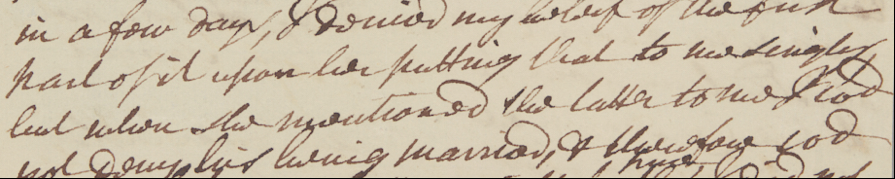 in a few days, & denied my belief of the first
part of it upon her putting that to me singly,
but when she mentioned the latter to me I cod
not deny his being married, & therefore cod